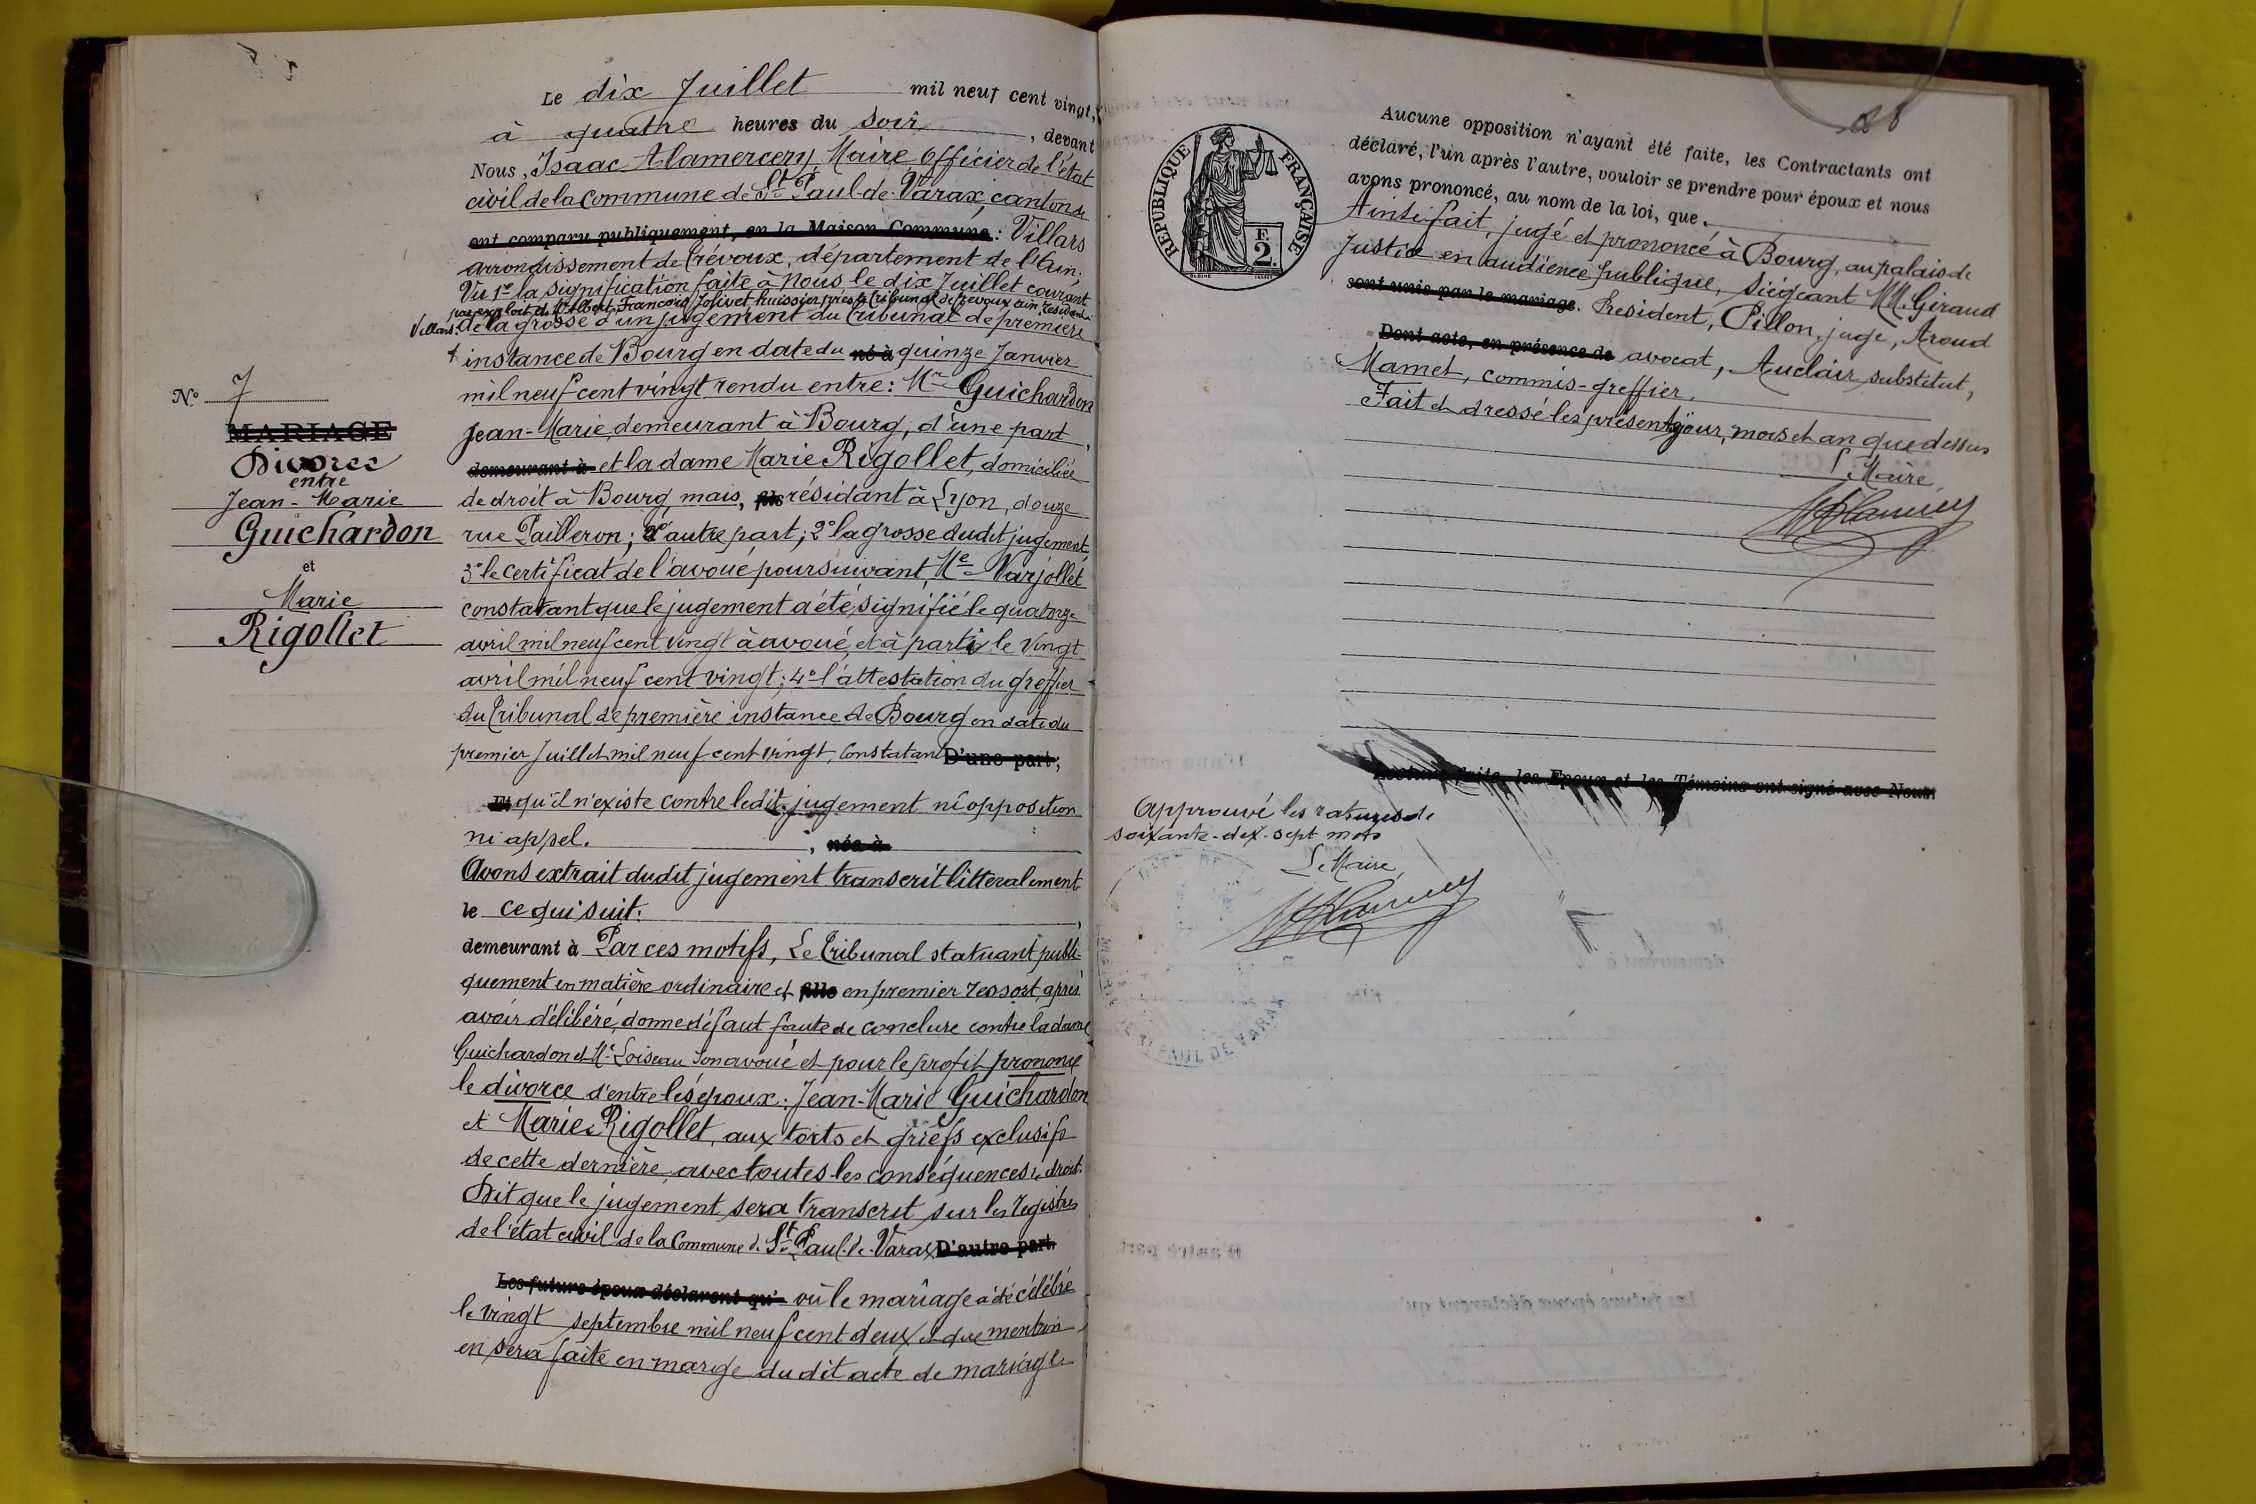 Le dix Juillet mil neuf cent vingt,
à quatre heures du soir, devant
Nous, Isaac Alamercery, Maire officier de l'état
civil de la commune de St Paul-de-Varax, canton de
ont comparu publiquement, en la Maison Commune : Villars
arrondissement de Trévoux, département de l'Ain.
Vu 1º la signification faite à Nous le dix Juillet courant
par exploit de Me Albert François Jolivet huissier près le Tribunal de Trévoux Ain résidant à
Villars de la grosse d'un jugement du Tribunal de première
instance de Bourg en date du né à quinze Janvier
mil neuf cent vingt rendu entre : Mr Guichardon
Nº 7
Jean-Marie, demeurant à Bourg, d'une part,
MARIAGE
Divorce
entre
Jean-Marie
Guichardon
et
Marie
Rigollet
demeurant à et la dame Marie Rigollet, domiciliée
de droit à Bourg, mais, fils résidant à Lyon, douze
rue Pailleron ; d'autre part ; 2º la grosse dudit jugement,
3º le certificat de l'avoué poursuivant, Me Varjollet
constatant que le jugement a été signifié le quatorze
avril mil neuf cent vingt à avoué, et à partie le vingt
avril mil neuf cent vingt ; 4º l'attestation du greffier
du Tribunal de première instance de Bourg en date du
premier Juillet mil neuf cent vingt, constatant D'une part ;
Et qu'il n'existe contre ledit jugement ni opposition
ni appel. , née à
Avons extrait dudit jugement transcrit littéralement
le ce qui suit.
demeurant à Par ces motifs, Le Tribunal statuant publi-
quement en matière ordinaire et fille en premier ressort, après
avoir délibéré, donne défaut faute de conclure contre la dame
Guichardon et Me Loiseau son avoué et pour le profit prononce
le divorce d'entre les époux : Jean-Marie Guichardon
et Marie Rigollet, aux torts et griefs exclusifs
de cette dernière, avec toutes les conséquences de droit.
Dit que le jugement sera transcrit sur les registres
de l'état civil de la Commune de St Paul-de-Varax D'autre part.
Les futurs époux déclarent qu' où le mariage a été célébré
le vingt septembre mil neuf cent deux et que mention
en sera faite en marge du dit acte de mariage.
88
RÉPUBLIQUE FRANÇAISE
F.
2.
Aucune opposition n'ayant été faite, les Contractants ont
déclaré, l'un après l'autre, vouloir se prendre pour époux et nous
avons prononcé, au nom de la loi, que
Ainsi fait, jugé et prononcé à Bourg, au palais de
Justice en audience publique, siégeant MM. Giraud
sont unis par le mariage. Président, Pillon, juge, Aroud
Dont acte, en présence de avocat, Auclair, substitut,
Mamet, commis-greffier.
Fait et dressé les présents jour, mois et an que dessus
Le Maire
Lecture faite, les Epoux et les Témoins ont signé avec Nous.
Approuvé les ratures de
soixante-dix-sept mots
Le Maire,